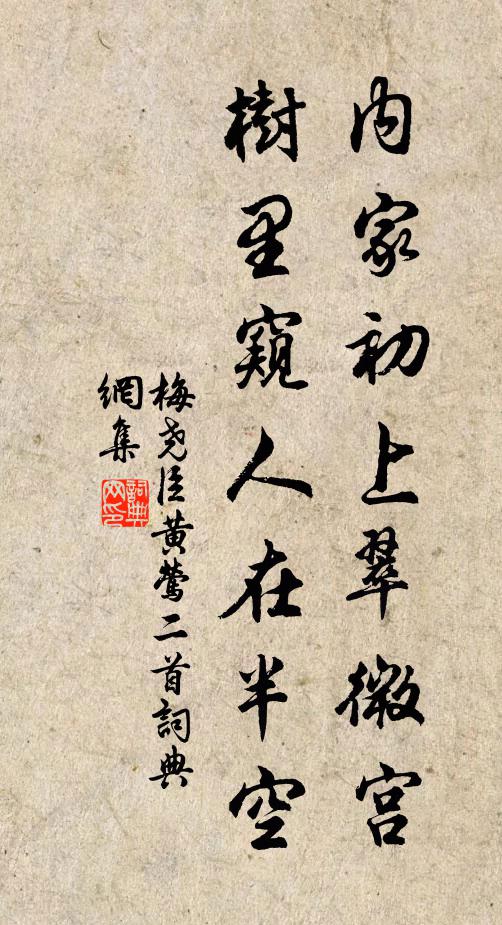 内家初上翠微宫
樹里窺人在半空
梅尧臣黄鶯二首詞典
網集
詞典
网印